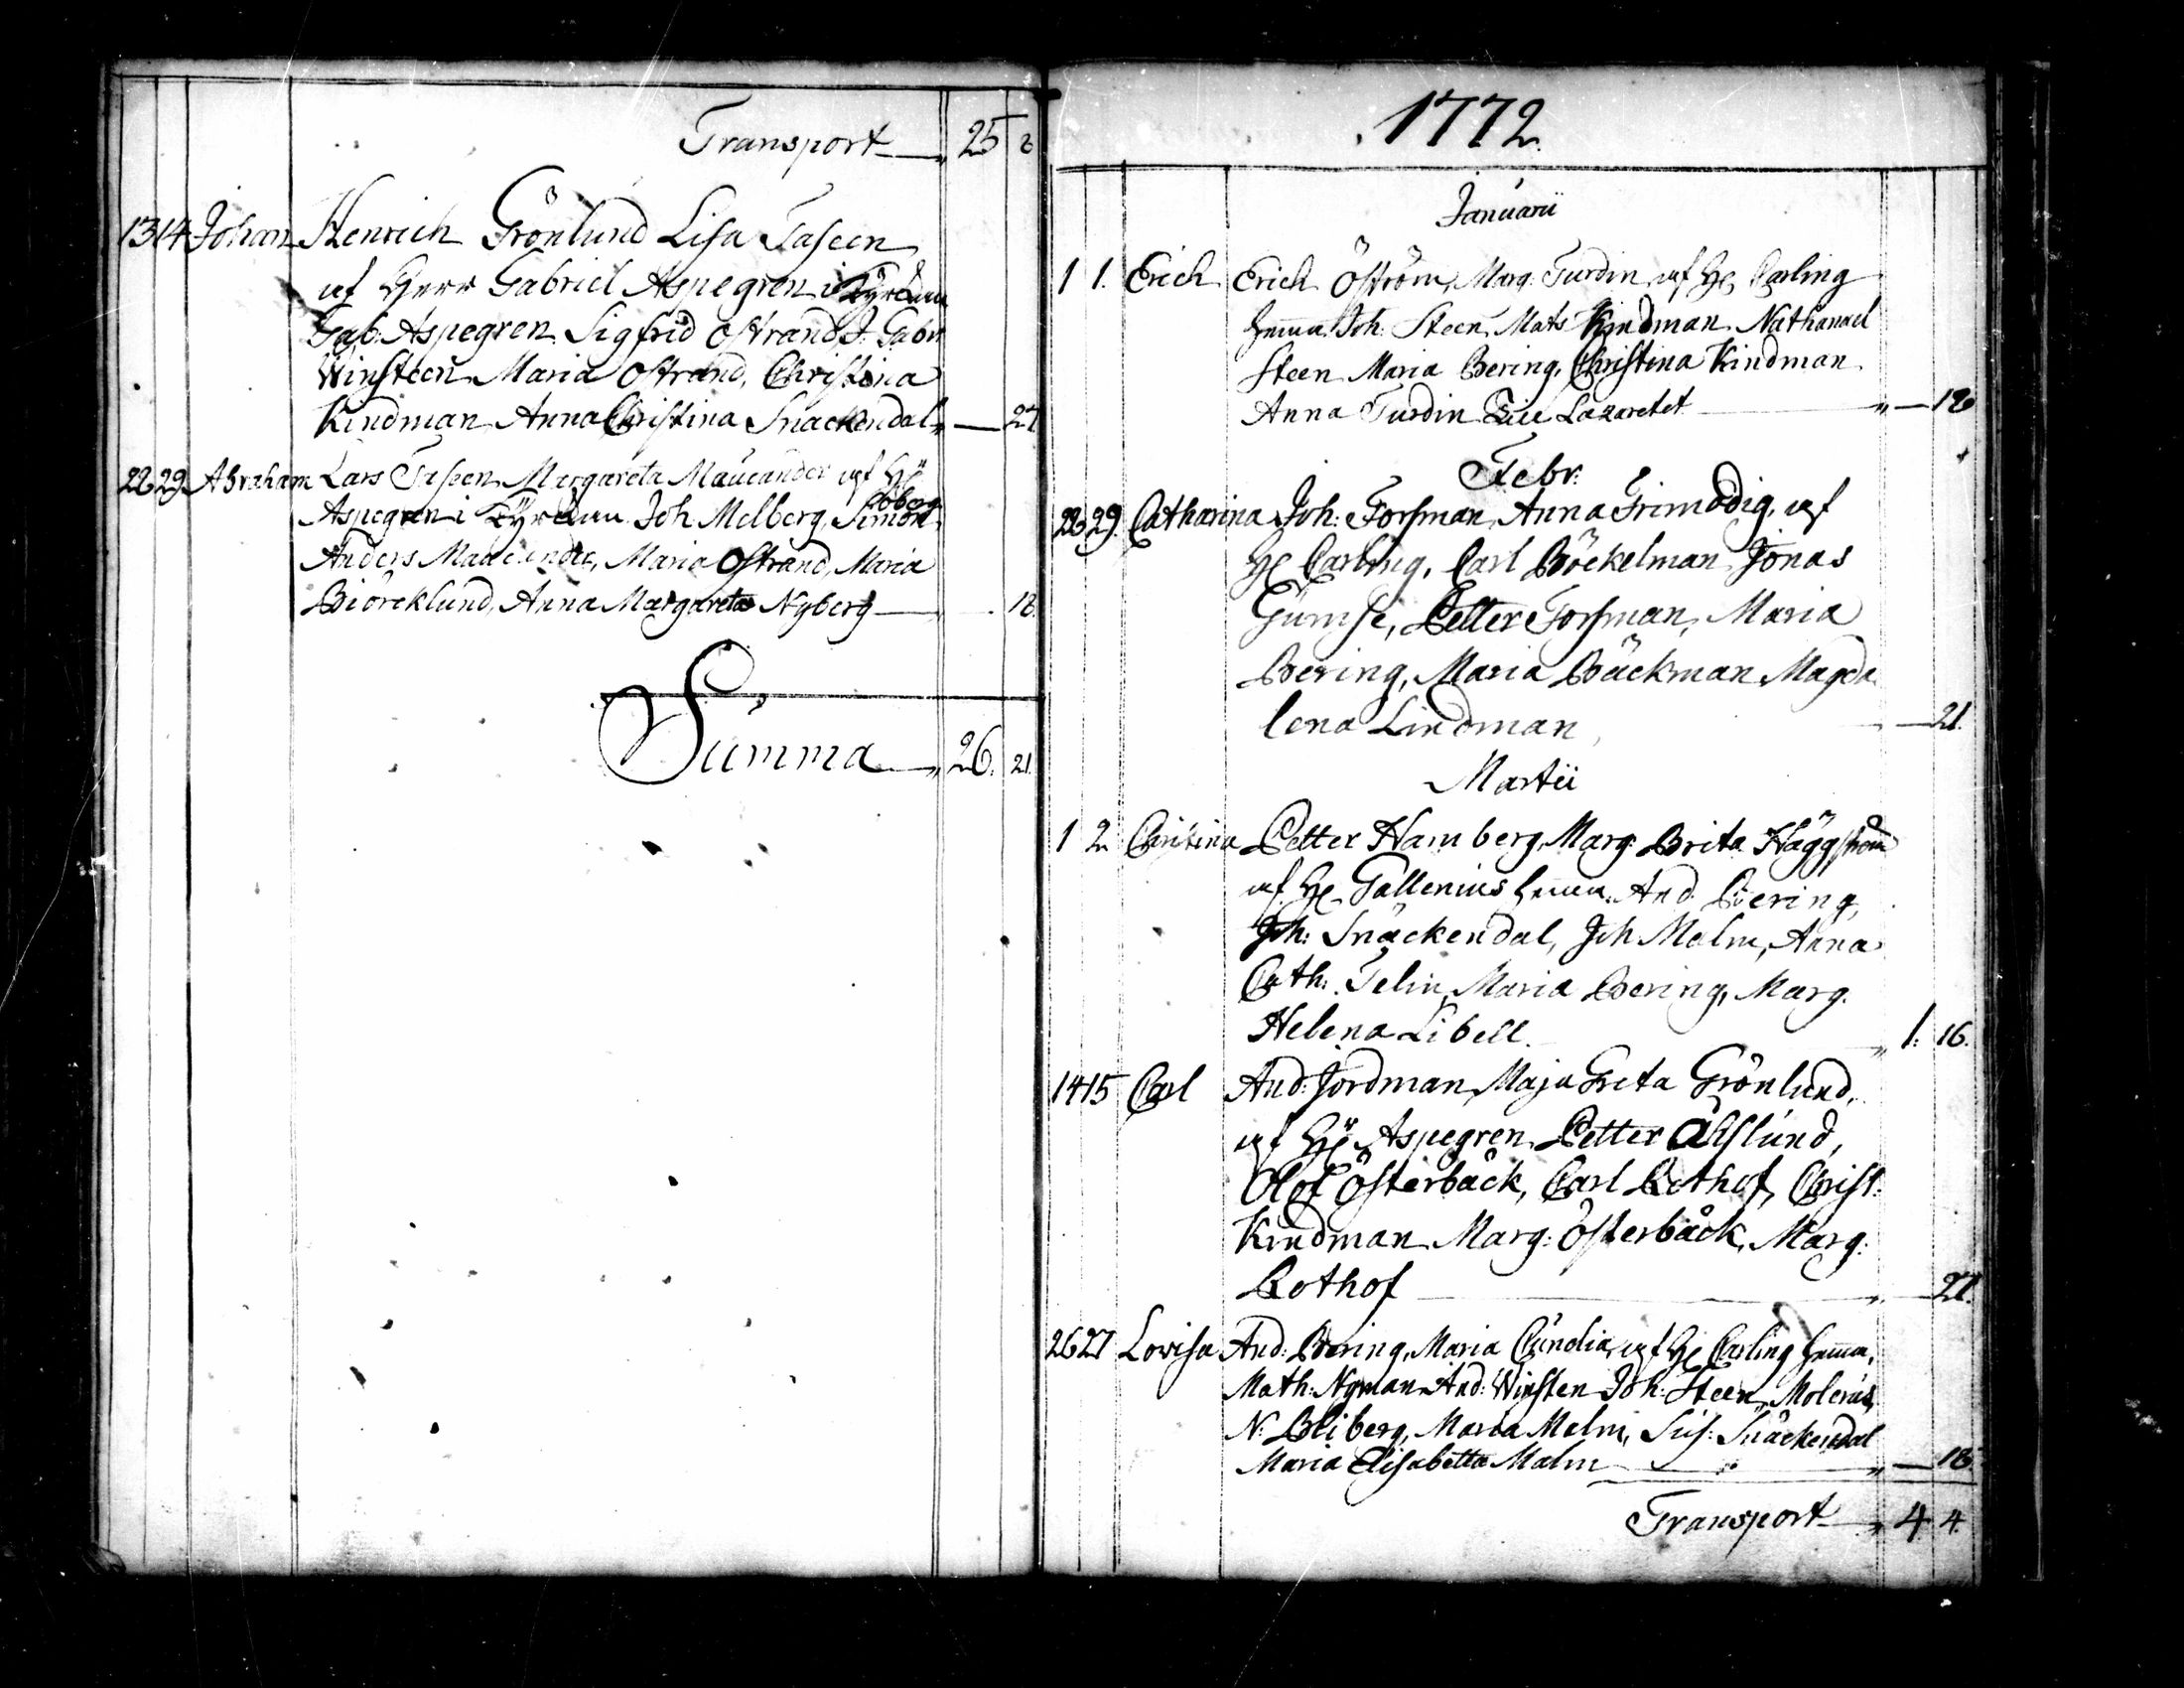 Transport 25 2
13 14 Johan Henrich Grönlund Lisa Taseen
af Herr Gabriel Aspegren i Kyrckan
Gab: Aspegren Sigfrid Ostrand J: Gabr
Winsteen Maria Ostrand, Christina
Kindman Anna Christina Snackendal — 27
22 29 Abraham Lars Taseen Margareta Maucander af H
Aspegren i Kyrckan Joh Melberg, Simon Boberg
Anders Maucander, Maria Ostrand, Maria
Biörcklund, Anna Margareta Nyberg — 18.
Summa 26. 21.
1772
Januarii
1 1. Erich Erich Öström, Marg. Turdin af H Carling
hemma Joh: Steen, Mats Kindman Nathanael
Steen Maria Bering, Christina Kindman
Anna Turdin Lazaretet —
Febr:
28 29. Catharina Joh: Forsman, Anna Grimodig, af
H Carling, Carl Böckelman Jonas
Gumse, Petter Forsman, Maria
Bering, Maria Bäckman Magda
lena Lindman — 21.
Martii
1 2 Christina Petter Hamberg, Marg: Brita Häggstrom
af H Gallenius hemma. And. Bering,
Joh: Snäckendal, Joh Malm, Anna
Cath: Telin, Maria Bering, Marg.
Helena Libell. 1: 16.
14 15 Carl And: Jordman, Maja Greta Grönlund,
af H Aspegren Petter Åhslund,
Olof Österbäck, Carl Rothof, Christ:
Kindman Marg: Österbäck, Marg:
Rothof — 21.
26 27 Lovisa And: Bering, Maria Cunelia, af H Carling hemma,
Math: Nyman And: Winsten Joh: Steen, Molerus,
N: Bliberg, Maria Melm, Sus: Snäckendal
Maria Elisabetta Malm — 18.
Transport 4. 4.